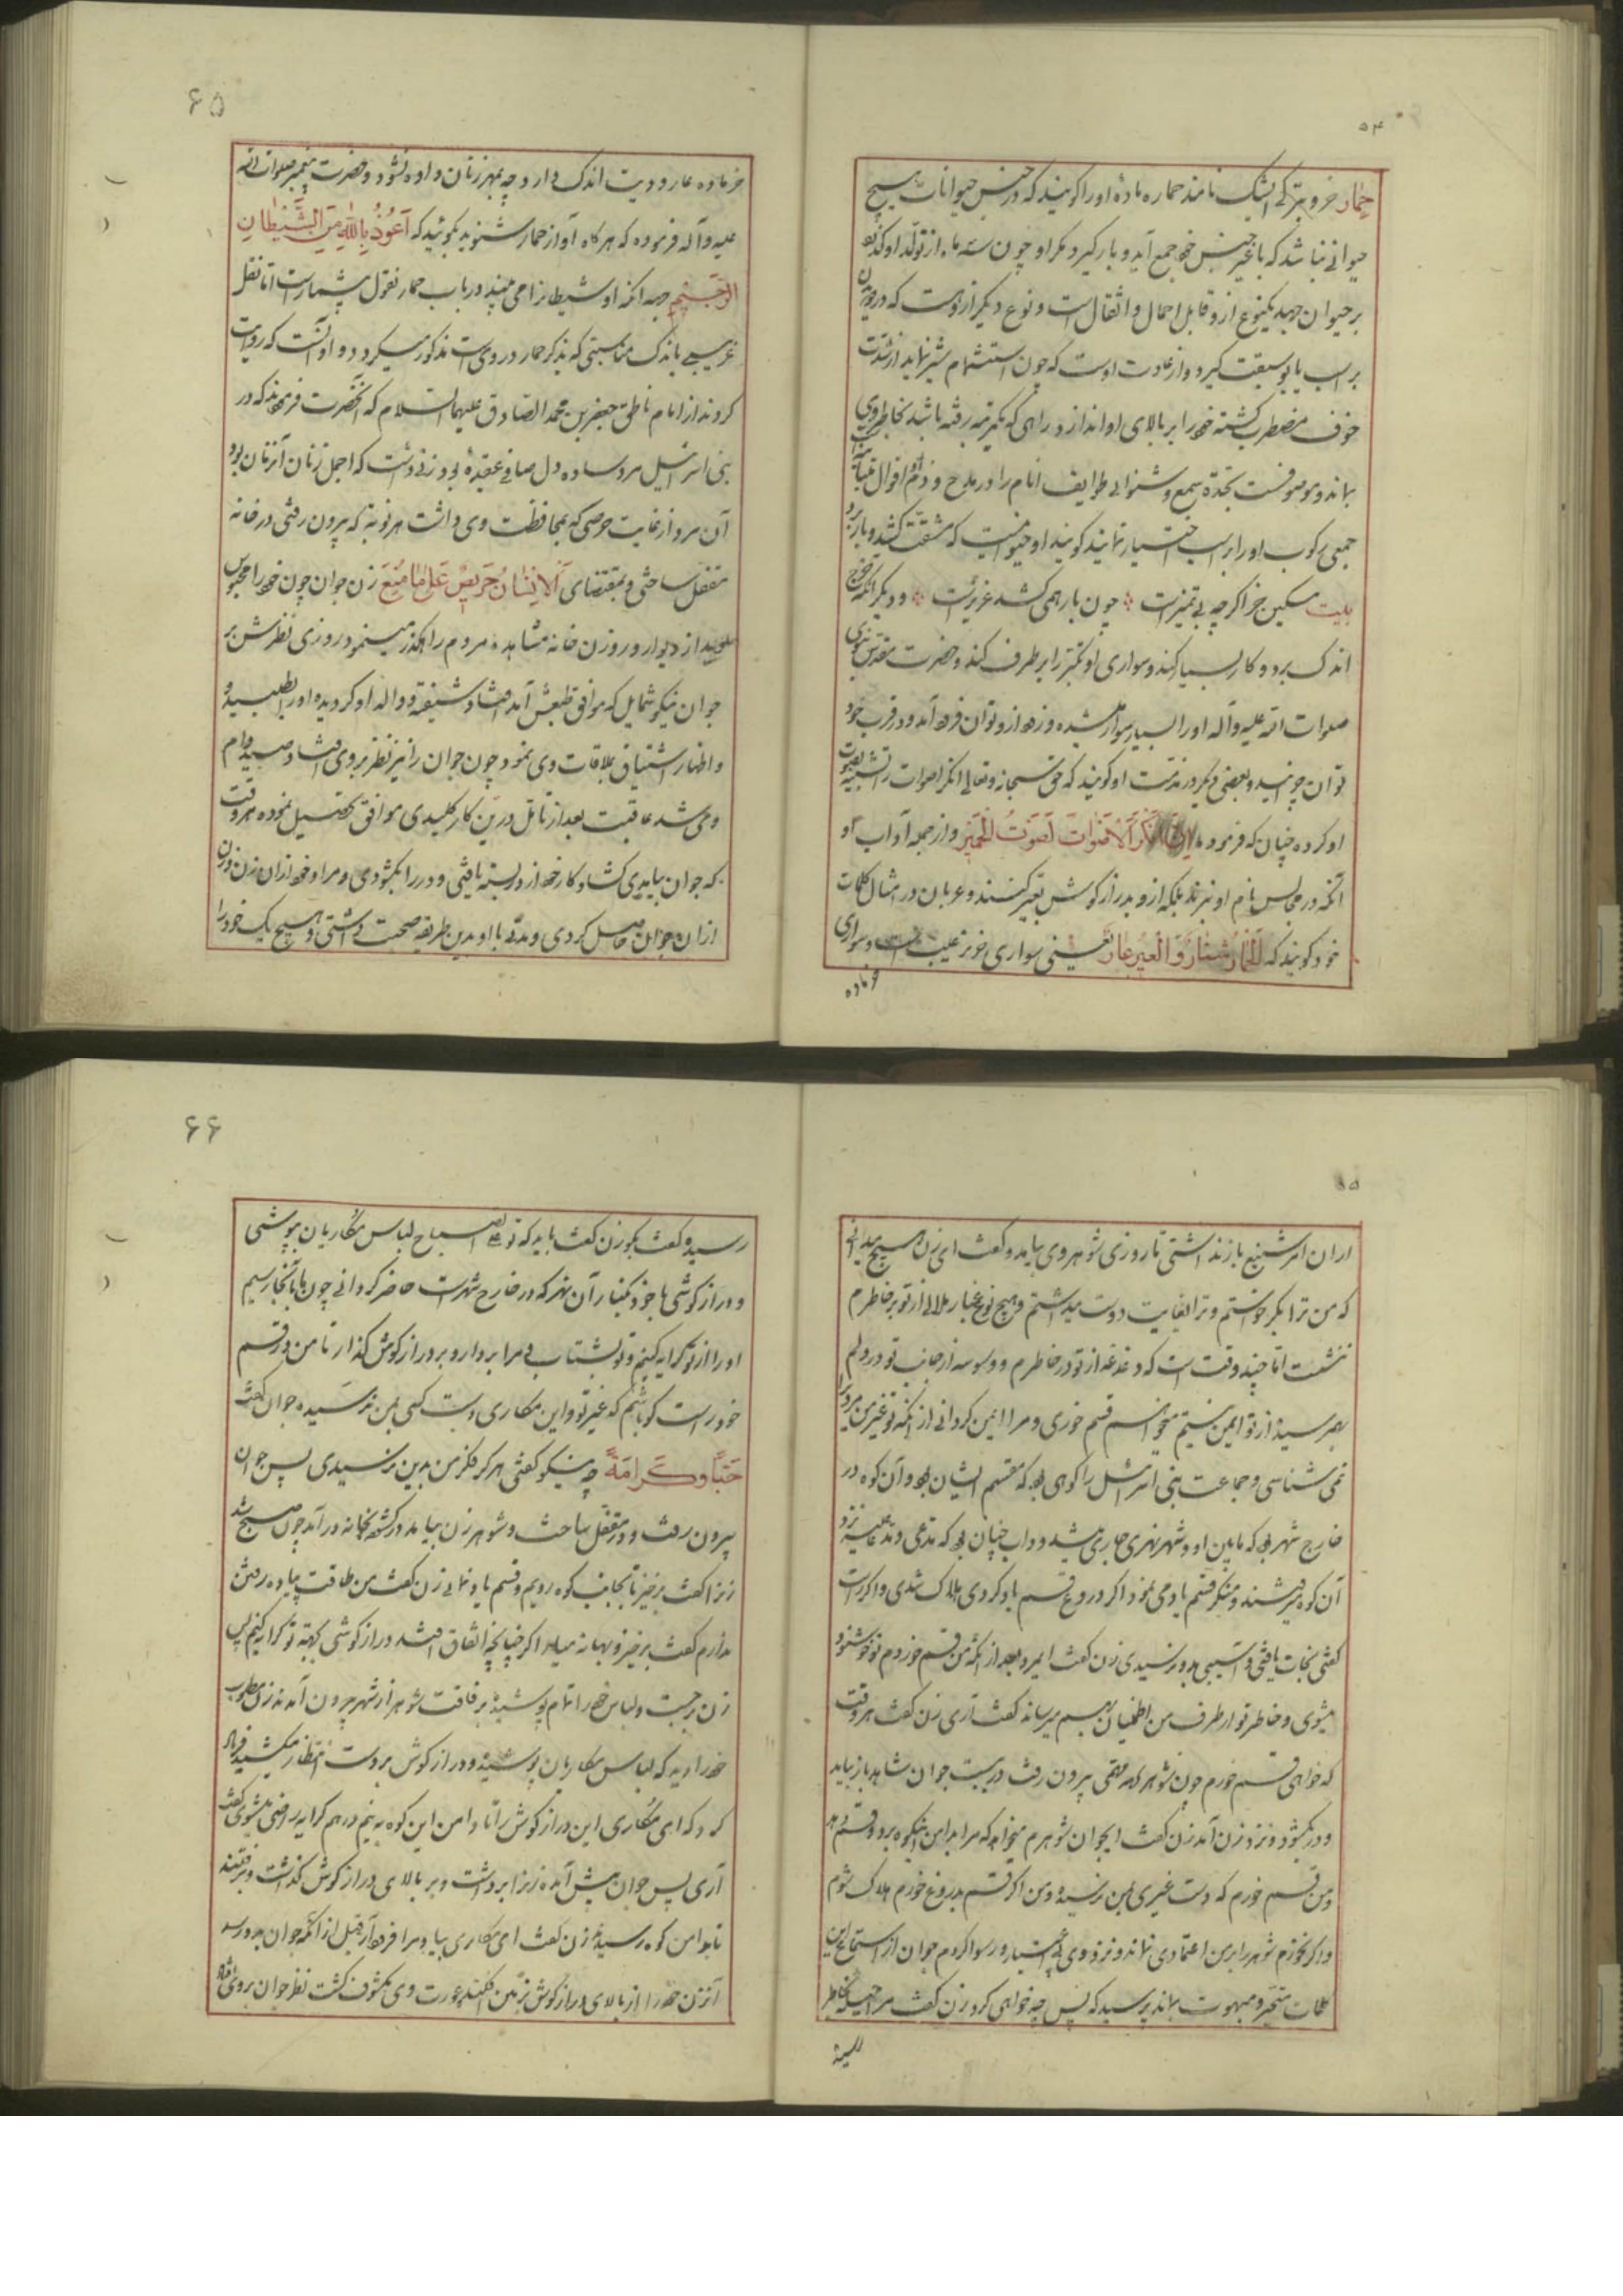 ۵۴
حمار خر و بترکی اشک نامند حماره ماده او را کویند که در جنس حیوانات هیچ
حیوانی نباشد که با غیر جنس خود جمع آید و بار کیرد مکر او چون سه ماه از تولد او کذرد
بر حیوان جهد یکنوع ازو قابل احمال و اثقال است و نوع دیکر ازوست که در دویدن
بر اسب یابو سبقت کیرد و از عادت اوست که چون استشمام شیر نماید از شدت
خوف مضطرب کشته خود را بر بالای او اندازد و راهی که یکمرتبه رفته باشد بخاطر وی
بماند و موصوفست بحدة سمع و شنوائی طوایف انام را در مدح و ذم او اقوال متباینه
جمعی رکوب او را بر اسب اختیار نمایند کویند او حیوانیست که مشقت کشد و بار برد
بیت مسکین خر اکرچه بی تمیزست چون بار همی کشد عزیزست و دیکر آنکه خرج
اندک برد و کار بسیار کند و سواری او تکبر را برطرف کند و حضرت مقدس نبوی
صلوات الله علیه و آله او را بسیار سوار میشده و زود ازو توان فرود آمد و در قرب خود
توان چرانید و بعضی دیکر در مذمت او کویند که حق سبحانه و تعالی انکر اصوات را تشبیه بصوت
او کرده چنان که فرموده ان انکر الاصوات لصوت الحمیر و از جمله آداب او
آنکه در مجالس نام او نبرند بلکه ازو بدراز کوش تعبیر کنند و عربان در امثال کلمات
خود کویند که الحمار شنار و العیر عار یعنی سواری خر نر عیب است و سواری
خر ماده
۶۵
خر ماده عار و دیت اندک دارد چه بمهر زنان داده نشود و حضرت پیغمبر صلوات الله
علیه و آله فرموده که هرکاه آواز حمار شنوید بکوئید که اعوذ بالله من الشیطان
الرجیم جهه آنکه او شیطانرا می بیند و در باب حمار نقول بیشمار است اما نقل
غریبی باندک مناسبتی که بذکر حمار در وی است مذکور میکردد و او آنست که روایت
کرده‌اند از امام ناطق جعفر بن محمد الصادق علیهما السلام که آنحضرت فرمودند که در
بنی اسرائیل مرد ساده دل صافی عقیدهٔ بود زنی داشت که اجمل زنان آن زمان بود
آن مرد از غایت حرصی که بمحافظت وی داشت هر نوبة که بیرون رفتی در خانه
مقفل ساختی و بمقتضای الانسان حریص علی ما منع زن جوان چون خود را محبوس
میدید از دیوار و روزن خانه مشاهده مردم راهکذر مینمود روزی نظرش بر
جوان نیکو شمایل که موافق طبعش آمد افتاد شیفته و واله او کردیده او را طلبیده
و اظهار اشتیاق بملاقات وی نمود چون جوان را نیز نظر بروی افتاد صید دام
وی شد عاقبت بعد از تامل در پی کار کلیدی موافق تحصیل نموده هر وقت
که جوان بیامدی کشاد کار خود از در بسته یافتی و در را بکشودی و مراد خود ازان زن و زن
ازان جوان حاصل کردی و مدتی با او بدین طریقه صحبت داشتی و هیچ یک خود را
۵۵
ازان امر شنیع باز نداشتی تا روزی شوهر وی بیامد و کفت ای زن هیچ میدانی
که من ترا بکر خواستم و ترا بغایت دوست میداشتم و هیچ نوع غبار ملالی از تو بر خاطرم
ننشست اما چند وقت است که دغدغه از تو در خاطرم و وسوسه از جانب تو در دلم
بهم رسیده از تو ایمن نیستم میخواهم قسم خوری و مرا ایمن کردانی از آنکه تو غیر من مردی را
نمی شناسی و جماعت بنی اسرائیل را کوهی بود که مقسم ایشان بود و آن کوه در
خارج شهر بود که مابین او و شهر نهری جاری میشد و داب چنان بود که مدعی و مدعا علیه نزد
آن کوه میرفتند و منکر قسم یاد می نمود اکر دروغ قسم یاد کردی هلاک شدی و اکر راست
کفتی نجات یافتی و آسیبی بدو نرسیدی زن کفت ایمرد بعد از آنکه من قسم خوردم تو خوشنود
میشوی و خاطر تو از طرف من اطمینان بهم میرساند کفت آری زن کفت هر وقت
که خواهی قسم خورم چون شوهر بمهمی بیرون رفت در بست جوان شاهد باز بیامد
و در بکشود و نزد زن آمد زن کفت ایجوان شوهرم میخواهد که مرا بدامن آنکوه برد و قسم دهد
و من قسم خورم که دست غیری بمن نرسیده و من اکر قسم بدروغ خورم هلاک شوم
و اکر نخورم شوهر را بر من اعتمادی نماند و نزد وی بی اعتبار و رسوا کردم جوان از استماع این
کلمات متحیر و مبهوت بماند پرسید که پس چه خواهی کرد زن کفت مرا حیلهٔ بخاطر
رسیده
۶۶
رسیده کفت بکو زن کفت باید که تو علی الصباح لباس مکاریان بپوشی
و دراز کوشی با خود بکنار آن نهر که در خارج شهرست حاضر کردانی چون ما بآنجا رسیم
او را از تو کرایه کنیم و تو بشتاب و مرا بردار و بر دراز کوش کذار تا من در قسم
خود راست کو باشم که غیر تو و این مکاری دست کسی بمن نرسیده جوان کفت
حبا و کرامة چه نیکو کفتی هرکز فکر من بدین نرسیدی پس جوان
بیرون رفت و در مقفل ساخت و شوهر زن بیامد در کشود بخانه درآمد چون صبح شد
زنرا کفت برخیز تا بجانب کوه رویم و قسم یاد نمائی زن کفت من طاقت پیاده رفتن
ندارم کفت برخیز و بهانه میاور اکر چنانچه اتفاق افتد دراز کوشی بجهته تو کرایه کنیم پس
زن برجست و لباس خود را تمام پوشیده برفاقت شوهر از شهر بیرون آمدند زن مطلوب
خود را دید که لباس مکاریان پوشیده و دراز کوش بر دست انتظار میکشید فریاد
کرد که ای مکاری این دراز کوش را تا دامن این کوه به نیم درهم کرایه راضی میشوی کفت
آری پس جوان پیش آمده زنرا برداشت و بر بالای دراز کوش کذاشت و برفتند
تا بدامن کوه رسیدند زن کفت ای مکاری بیا و مرا فرود آر قبل از آنکه جوان بدو رسد
آنزن خود را از بالای دراز کوش بزمین افکند و عورت وی مکشوف کشت نظر جوان بروی افتاد